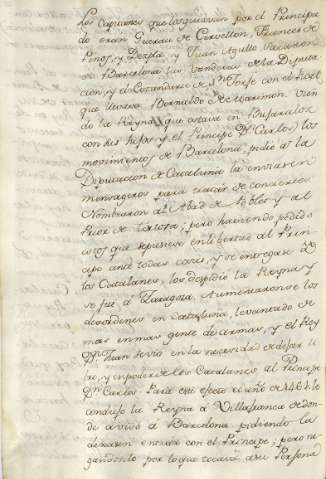 Los Capitanes que las guiavan por el Principe
do eran Guerau de Cervellon, Frances de
Pinos, y Dezpla, y Juan Agullo Sacaron
de Barcelona las Vanderas de la Diputa
cion, y el Estandarte de Sn. Jorje con el Rl
que llevava Bernaldo de Marimon. Vien
do la Reyna, que estava en
con sus hijos, y el Principe Dn. Carlos) los
movimientos de Barcelona, pidio a la
Diputacion de Cataluña la enviasen
mensageros para tratar de concierto.
Nombraron al Abad de Poblet y al
Prior de Tortosa; pero haviendo pedido
estos que se pusiese en libertad al Prin
cipe ante todas cosas, y se entregase a
los Catalanes, los despidio la Reyna, y
se fue a Zaragoza. Aumentaronse los
desordenes en Cataluña, levantado se
mas y mas gente de armas, y el Rey
Dn. Juan se vio en la necesidad de dejar li
bre, y en poder de los Catalanes al Principe
Dn. Carlos. Para este efecto el año de 1461 le
condujo la Reyna a Villafranca de don
de aviso a Barcelona pidiendo la
dexasen entrar con el Principe; pero ne
gandolo por lo que a su Persona